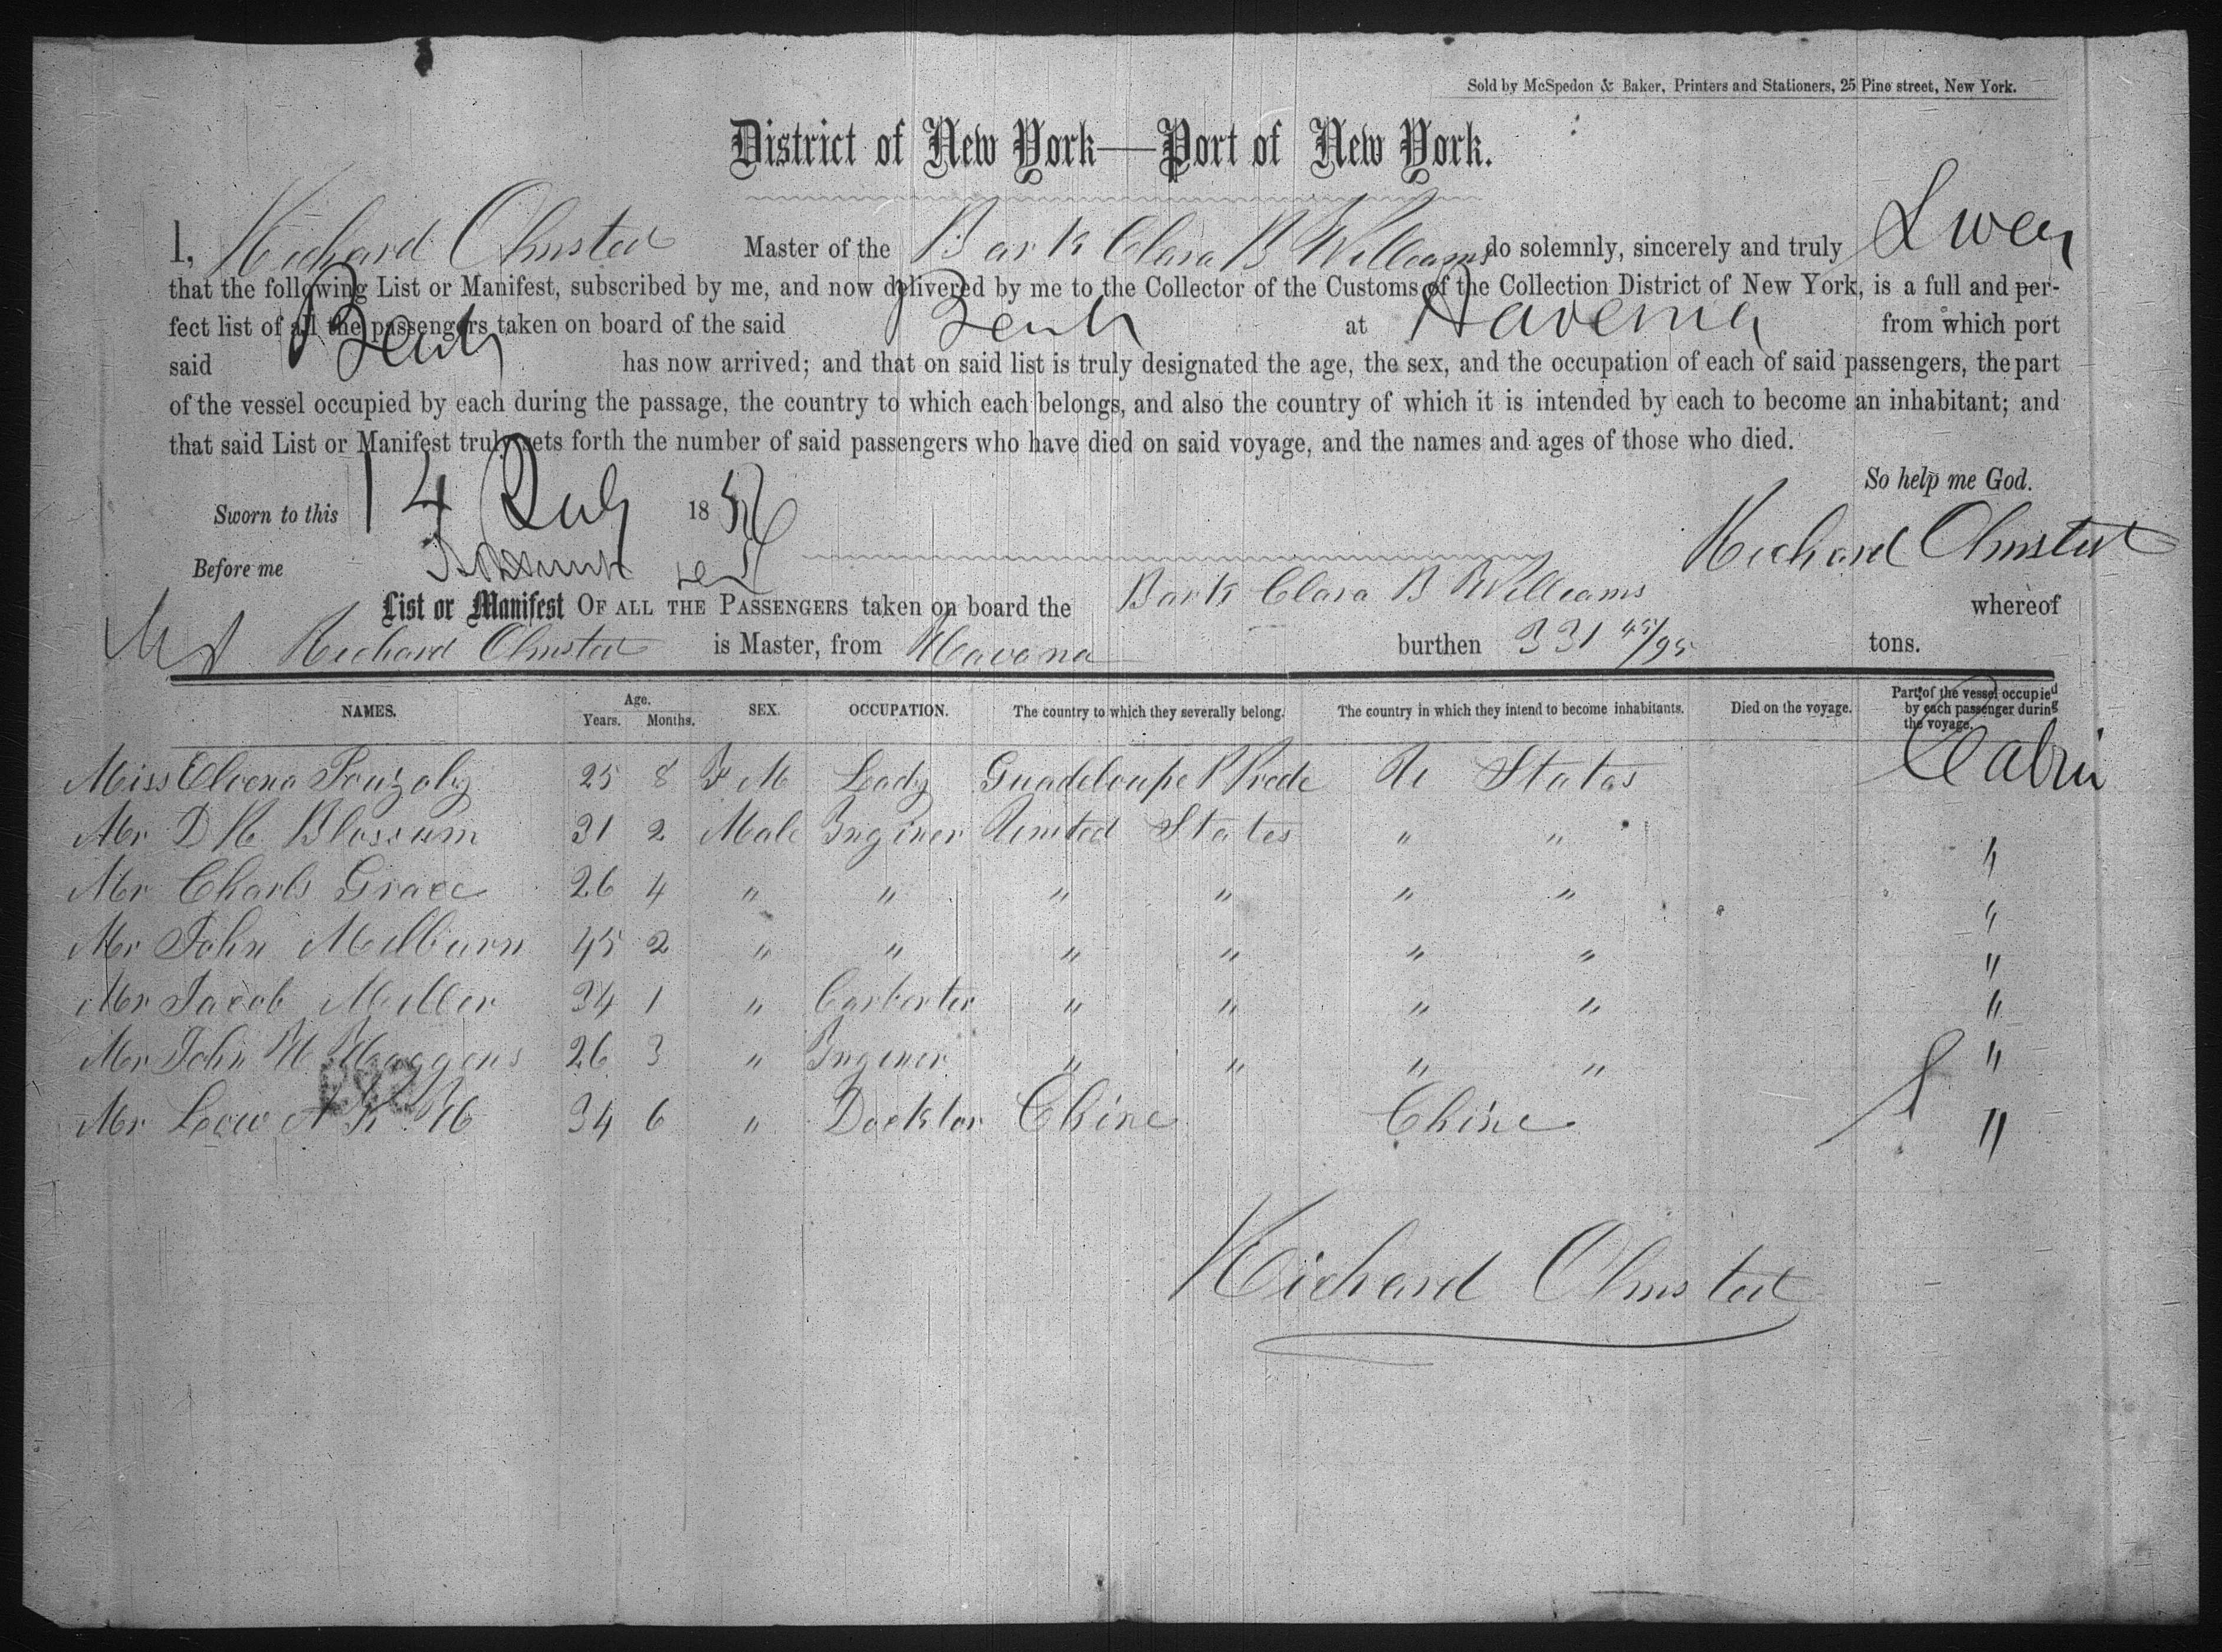 Sold by McSpedon & Baker, Printers and Stationers, 25 Pine street, New York.
District of New York—Port of New York.
I, Richard Olmsted Master of the Bark Clara B Williams do solemnly, sincerely and truly Swear
that the following List or Manifest, subscribed by me, and now delivered by me to the Collector of the Customs of the Collection District of New York, is a full and per-
fect list of all the passengers taken on board of the said Bark at Havana from which port
said Bark has now arrived; and that on said list is truly designated the age, the sex, and the occupation of each of said passengers, the part
of the vessel occupied by each during the passage, the country to which each belongs, and also the country of which it is intended by each to become an inhabitant; and
that said List or Manifest truly sets forth the number of said passengers who have died on said voyage, and the names and ages of those who died.
So help me God.
Sworn to this 14 July 185
Richard Olmsted
Before me
List or Manifest OF ALL THE PASSENGERS taken on board the Bark Clara B Williams whereof
Richard Olmsted is Master, from Havana burthen 331 45/95 tons.
NAMES. Age. Years. Months. SEX. OCCUPATION. The country to which they severally belong. The country in which they intend to become inhabitants. Died on the voyage. Part of the vessel occupied by each passenger during the voyage.
Miss 25 8 F M Lady Guadeloupe U States Cabin
Mr D H Blossum 31 2 Male Inginer United States " " "
Mr Charls Grace 26 4 " " " " " " "
Mr John Milburn 45 2 " " " " " " "
Mr Jacob Miller 34 1 " Carbenter " " " " "
Mr John H 26 3 " Inginer " " " " "
Mr Low A 34 6 " Docktor Chine Chine "
Richard Olmsted